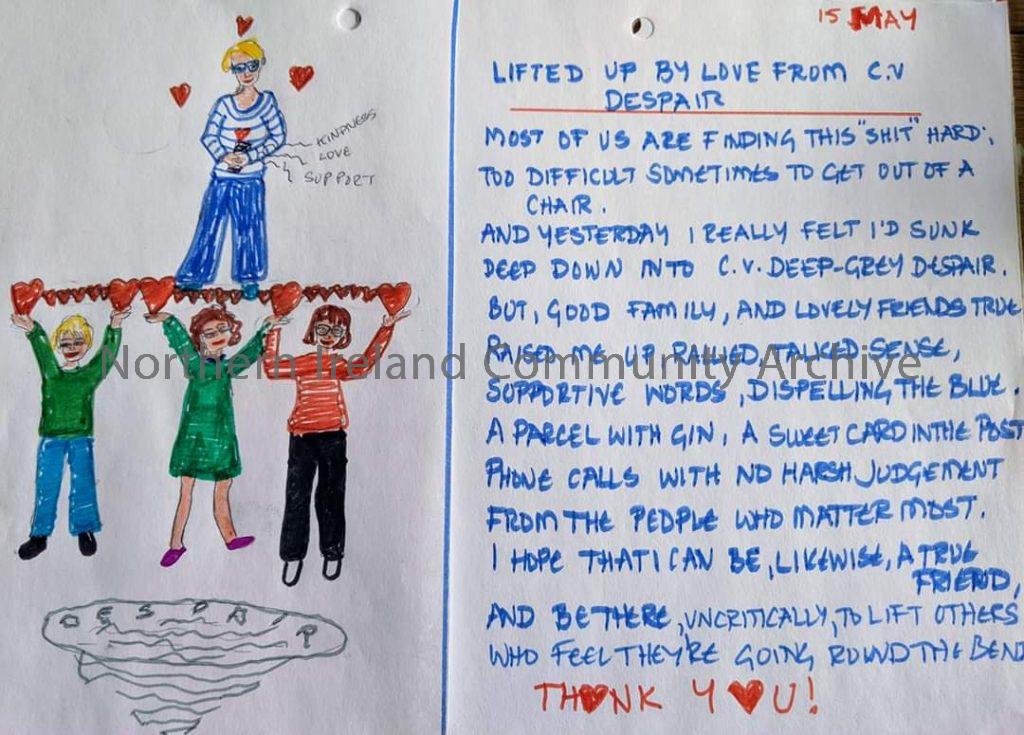 KINDNESS
LOVE
SUPPORT
DESPAIR
15 MAY
LIFTED UP BY LOVE FROM C.V
DESPAIR
MOST OF US ARE FINDING THIS "SHIT" HARD;
TOO DIFFICULT SOMETIMES TO GET OUT OF A
CHAIR.
AND YESTERDAY I REALLY FELT I'D SUNK
DEEP DOWN INTO C.V. DEEP-GREY DESPAIR.
BUT, GOOD FAMILY, AND LOVELY FRIENDS TRUE
RAISED ME UP RALLIED, TALKED SENSE,
SUPPORTIVE WORDS, DISPELLING THE BLUE.
A PARCEL WITH GIN, A SWEET CARD IN THE POST
PHONE CALLS WITH NO HARSH JUDGEMENT
FROM THE PEOPLE WHO MATTER MOST.
I HOPE THAT I CAN BE, LIKEWISE, A TRUE
FRIEND,
AND BE THERE, UNCRITICALLY, TO LIFT OTHERS
WHO FEEL THEY'RE GOING ROUND THE BEND
TH♥NK Y♥U!
Northern Ireland Community Archive